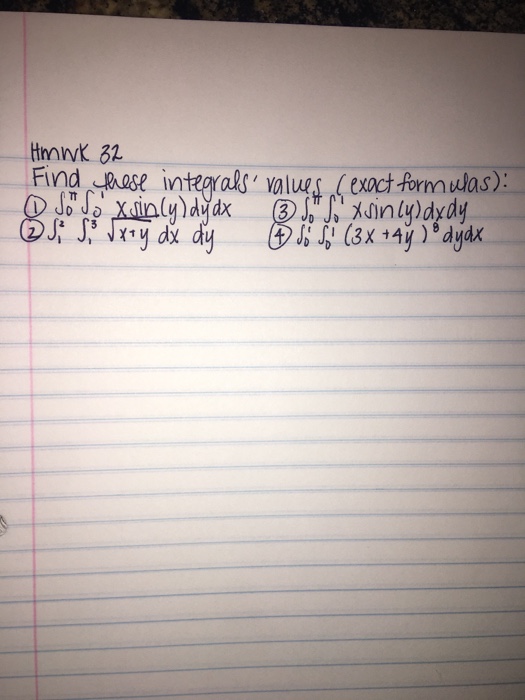 Hmwk 32
Find these integrals' values (exact formulas):
① ∫₀^π ∫₀¹ x sin(y) dy dx ③ ∫₀^π ∫₀¹ x sin(y) dx dy
② ∫₁² ∫₁³ √x+y dx dy ④ ∫₀¹ ∫₀¹ (3x + 4y)⁸ dy dx